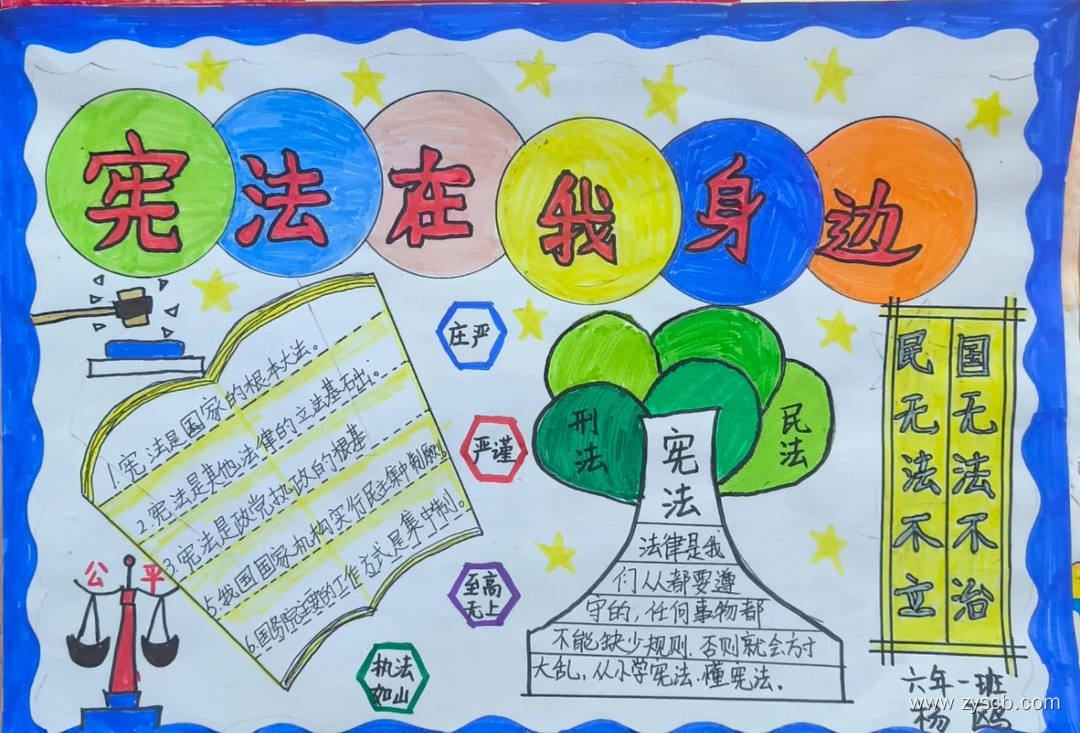 宪法在我身边
1.宪法是国家的根本大法。
2.宪法是其他法律的立法基石出。
3.宪法是政党执政的根基
5.我国国家机构实行民主集中制原则。
6.国务院主要的工作方式是集中制。
公平
庄严
严谨
至高
无上
执法
如山
刑法
宪法
民法
法律是我
们从都要遵
守的,任何事物都
不能缺少规则.否则就会方寸
大乱,从小学宪法.懂宪法.
国无法不治
民无法不立
六年一班
杨
www.zyscb.com